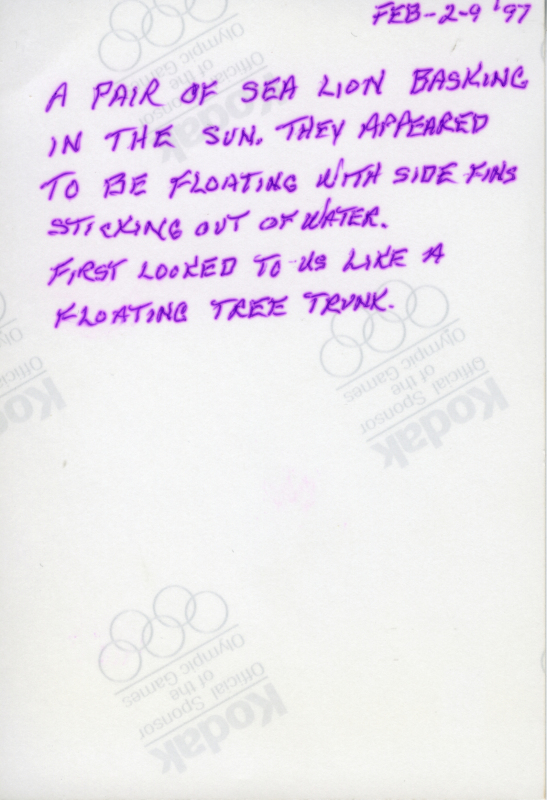 FEB-2-9 '97
A PAIR OF SEA LION BASKING
IN THE SUN. THEY APPEARED
TO BE FLOATING WITH SIDE FINS
STICKING OUT OF WATER.
FIRST LOOKED TO US LIKE A
FLOATING TREE TRUNK.
Kodak
Official Sponsor
of the
Olympic Games
Kodak
Official Sponsor
of the
Olympic Games
Kodak
Official Sponsor
of the
Olympic Games